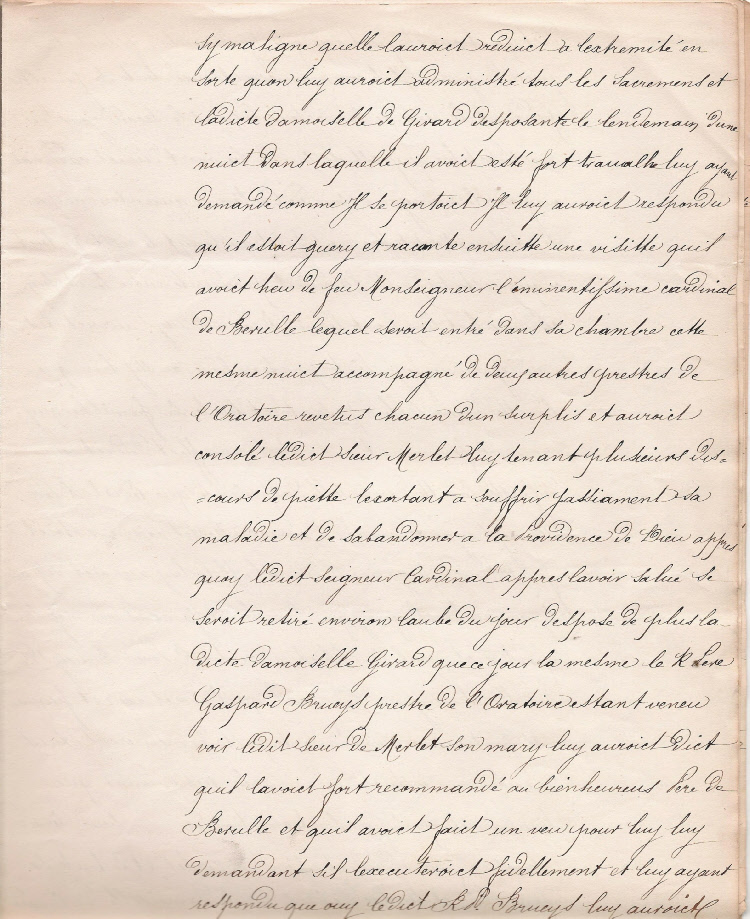 sy maligne quelle lauroict reduict a lextremité en
sorte quon luy auroict administré tous les Sacremens et
ladicte damoiselle de Girard desposante le lendemain dune
nuict dans laquelle il avoict esté fort travalhe luy ayant
demandé comme Il se portoict Il luy auroict respondu
qu'il estoit guery et raconte ensuitte une visitte quil
avoict heu de feu Monseigneur l'éminentissime cardinal
de Berulle lequel seroit entré dans sa chambre cette
mesme nuict accompagné de deux autres prestres de
l'Oratoire revetus chacun dun surplis et auroict
consolé ledict sieur Merlet luy tenant plusieurs dis=
=cours de piette lexortant a souffrir passiament sa
maladie et de sabandonner a la Providence de Dieu appres
quoy ledict seigneur Cardinal appres lavoir salué se
seroit retiré environ laube du jour despose de plus la
dicte damoiselle Girard que ce jour la mesme le R Pere
Gaspard Brueys prestre de l'Oratoire estant veneu
voir ledit sieur de Merlet son mary luy auroict dict
quil lavoict fort recommandé au bienheureus Pere de
Berulle et quil avoict faict un veu pour luy luy
demandant sil lexecuteroict fidellement et luy ayant
respondu que ouy ledict R P Brueys luy auroict